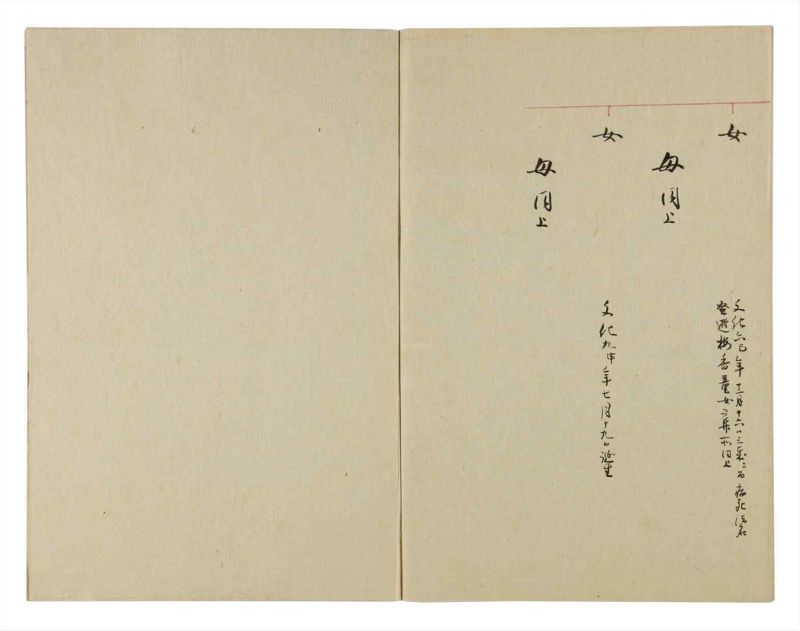 女
母同上
文化六巳年十二月十六日三歳ニ而病死法名
登遊梅香童女葬所同上
女
母同上
文化九申年七月十九日誕生